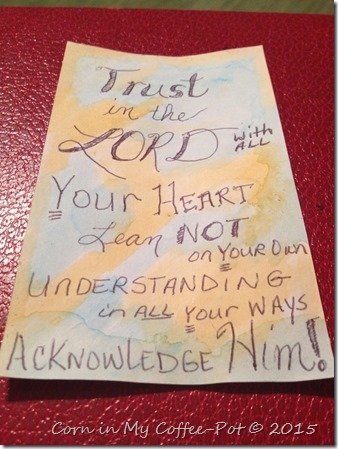 Trust
in the
LORD with ALL
Your HEART
Lean NOT
on Your Own
UNDERSTANDING
in ALL Your WAYS
ACKNOWLEDGE Him!
Corn in My Coffee-Pot © 2015